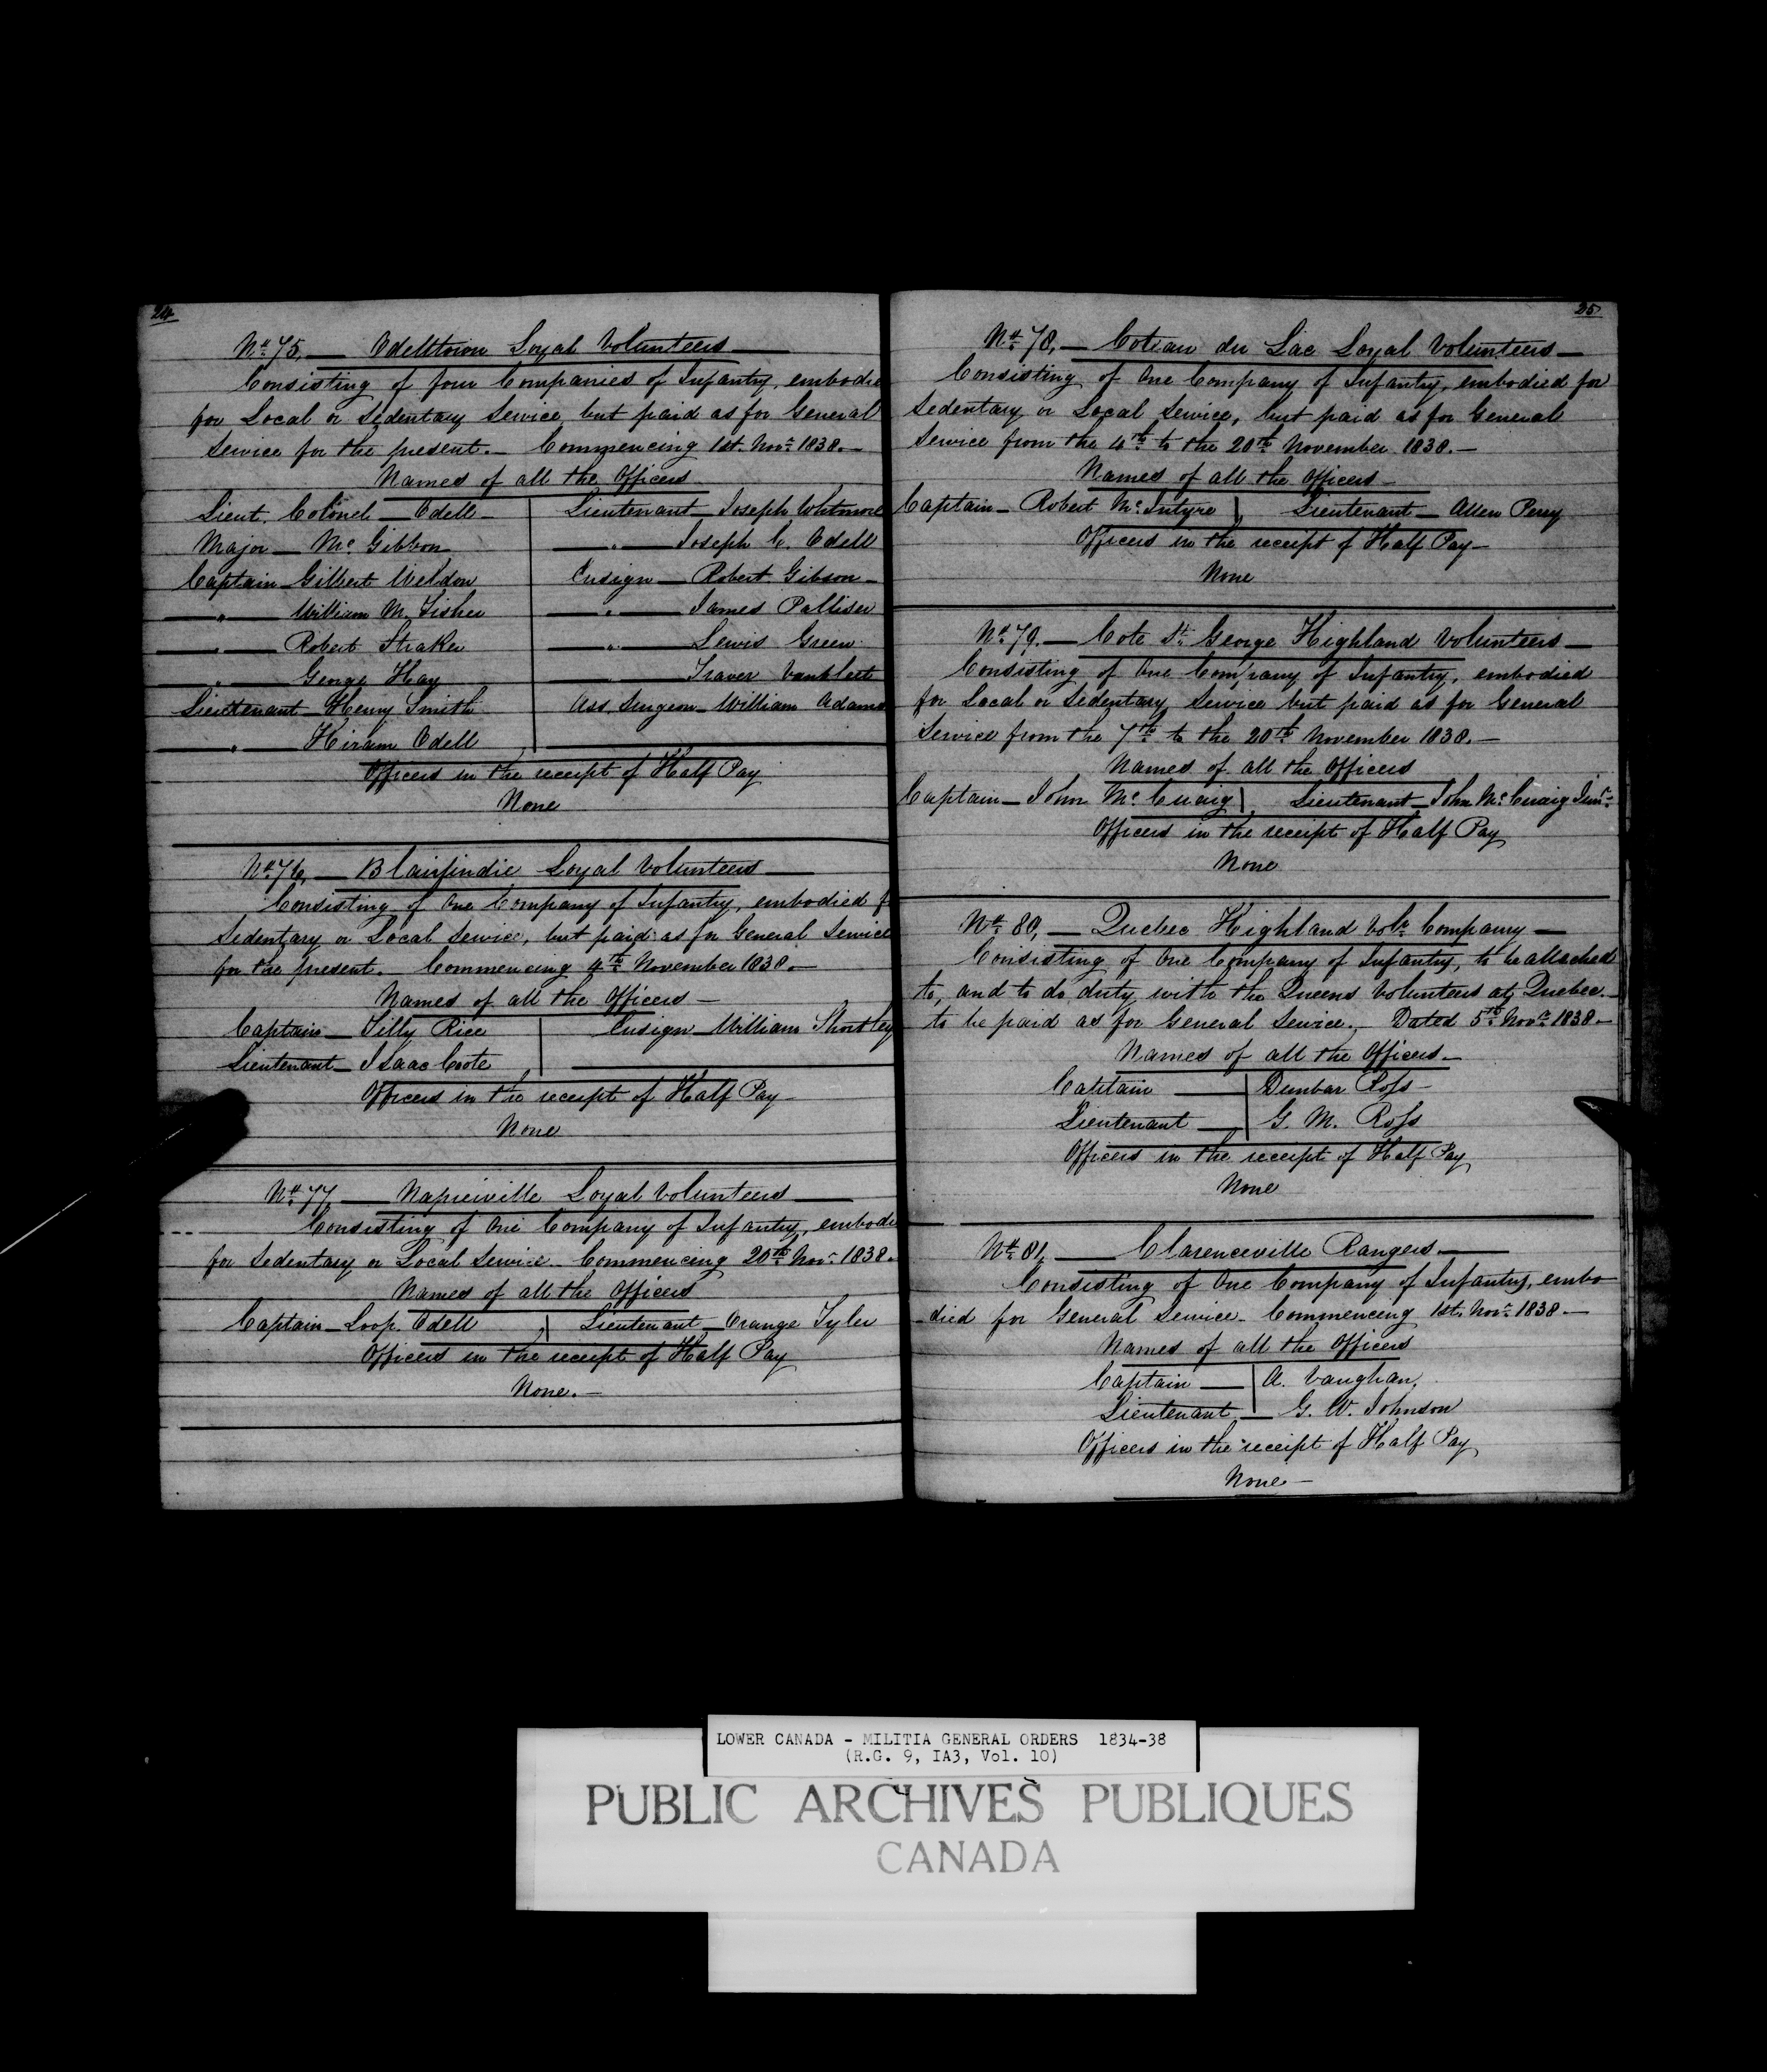 24
No. 75, — Odelltown Loyal Volunteers —
Consisting of four Companies of Infantry, embodie
for Local or Sedentary Service, but paid as for General
Service for the present. — Commencing 1st. Novr. 1838. —
Names of all the Officers
Lieut. Colonel — Odell —
Major — Mc Gibbon
Captain — Gilbert Weldon
— " — William M. Fisher
— " — Robert Straker
— " — George Hay
Lieutenant — Henry Smith
— " — Hiram Odell
Lieutenant — Joseph Whitmore
— " — Joseph C. Odell
Ensign — Robert Gibson —
— " — James Palliser
— " — Lewis Green
— " — Traver Vanvleet
Ass. Surgeon — William Adams
Officers in the receipt of Half Pay
None
No. 76, — Blairfindie Loyal Volunteers —
Consisting of One Company of Infantry, embodied f
Sedentary or Local Service, but paid as for General Service
for the present. — Commencing 4th November 1838. —
Names of all the Officers —
Captain — Tilly Rice
Lieutenant — Isaac Coote
Ensign — William Shortley
Officers in the receipt of Half Pay —
None
No. 77, — Napierville Loyal Volunteers —
Consisting of One Company of Infantry, embodi
for Sedentary or Local Service — Commencing 20th Novr. 1838.
Names of all the Officers
Captain — Loop. Odell | Lieutenant — Orange Tyler
Officers in the receipt of Half Pay
None. —
25
No. 78, — Coteau du Lac Loyal Volunteers —
Consisting of One Company of Infantry, embodied for
Sedentary or Local Service, but paid as for General
Service from the 4th to the 20th November 1838. —
Names of all the Officers —
Captain — Robert Mc Intyre | Lieutenant — Allen Perry
Officers in the receipt of Half Pay —
None
No. 79. — Cote St. George Highland Volunteers —
Consisting of One Company of Infantry, embodied
for Local or Sedentary Service but paid as for General
Service from the 7th to the 20th November 1838. —
Names of all the Officers
Captain — John Mc Cuaig | Lieutenant — John Mc Cuaig Junr.
Officers in the receipt of Half Pay
None
No. 80, — Quebec Highland Volr. Company —
Consisting of One Company of Infantry, to be attached
to, and to do duty with the Queens Volunteers at Quebec. —
to be paid as for General Service. Dated 5th Novr. 1838 —
Names of all the Officers —
Captain — | Dunbar Ross —
Lieutenant — | G. M. Ross
Officers in the receipt of Half Pay
None
No. 81, — Clarenceville Rangers —
Consisting of One Company of Infantry, embo
-died for General Service — Commencing 1st. Novr. 1838 —
Names of all the Officers
Captain — | A. Vaughan,
Lieutenant — G. W. Johnson
Officers in the receipt of Half Pay
None —
LOWER CANADA - MILITIA GENERAL ORDERS 1834-38
(R.G. 9, IA3, Vol. 10)
PUBLIC ARCHIVES PUBLIQUES
CANADA